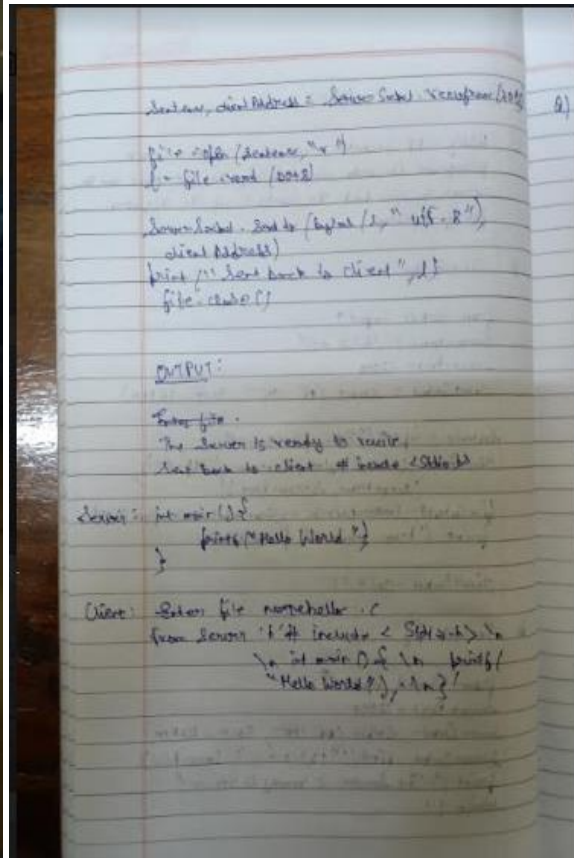 Sentence, client Address = Server Socket. recvfrom (2048)
file = open (Sentence, "r")
l = file. read (2048)
Server Socket. Send to (bytes (l, "utf-8"),
client Address)
print ("Sent back to client", l)
file. close ()
OUTPUT:
The Server is ready to
Sent back to client # include <Stdio.h>
Server: int main () {
printf ("Hello World")
}
Client: Enter file name hello . c
from Server 'b' # include < Stdio.h> \n
\n int main () { \n printf (
"Hello World"
Q)